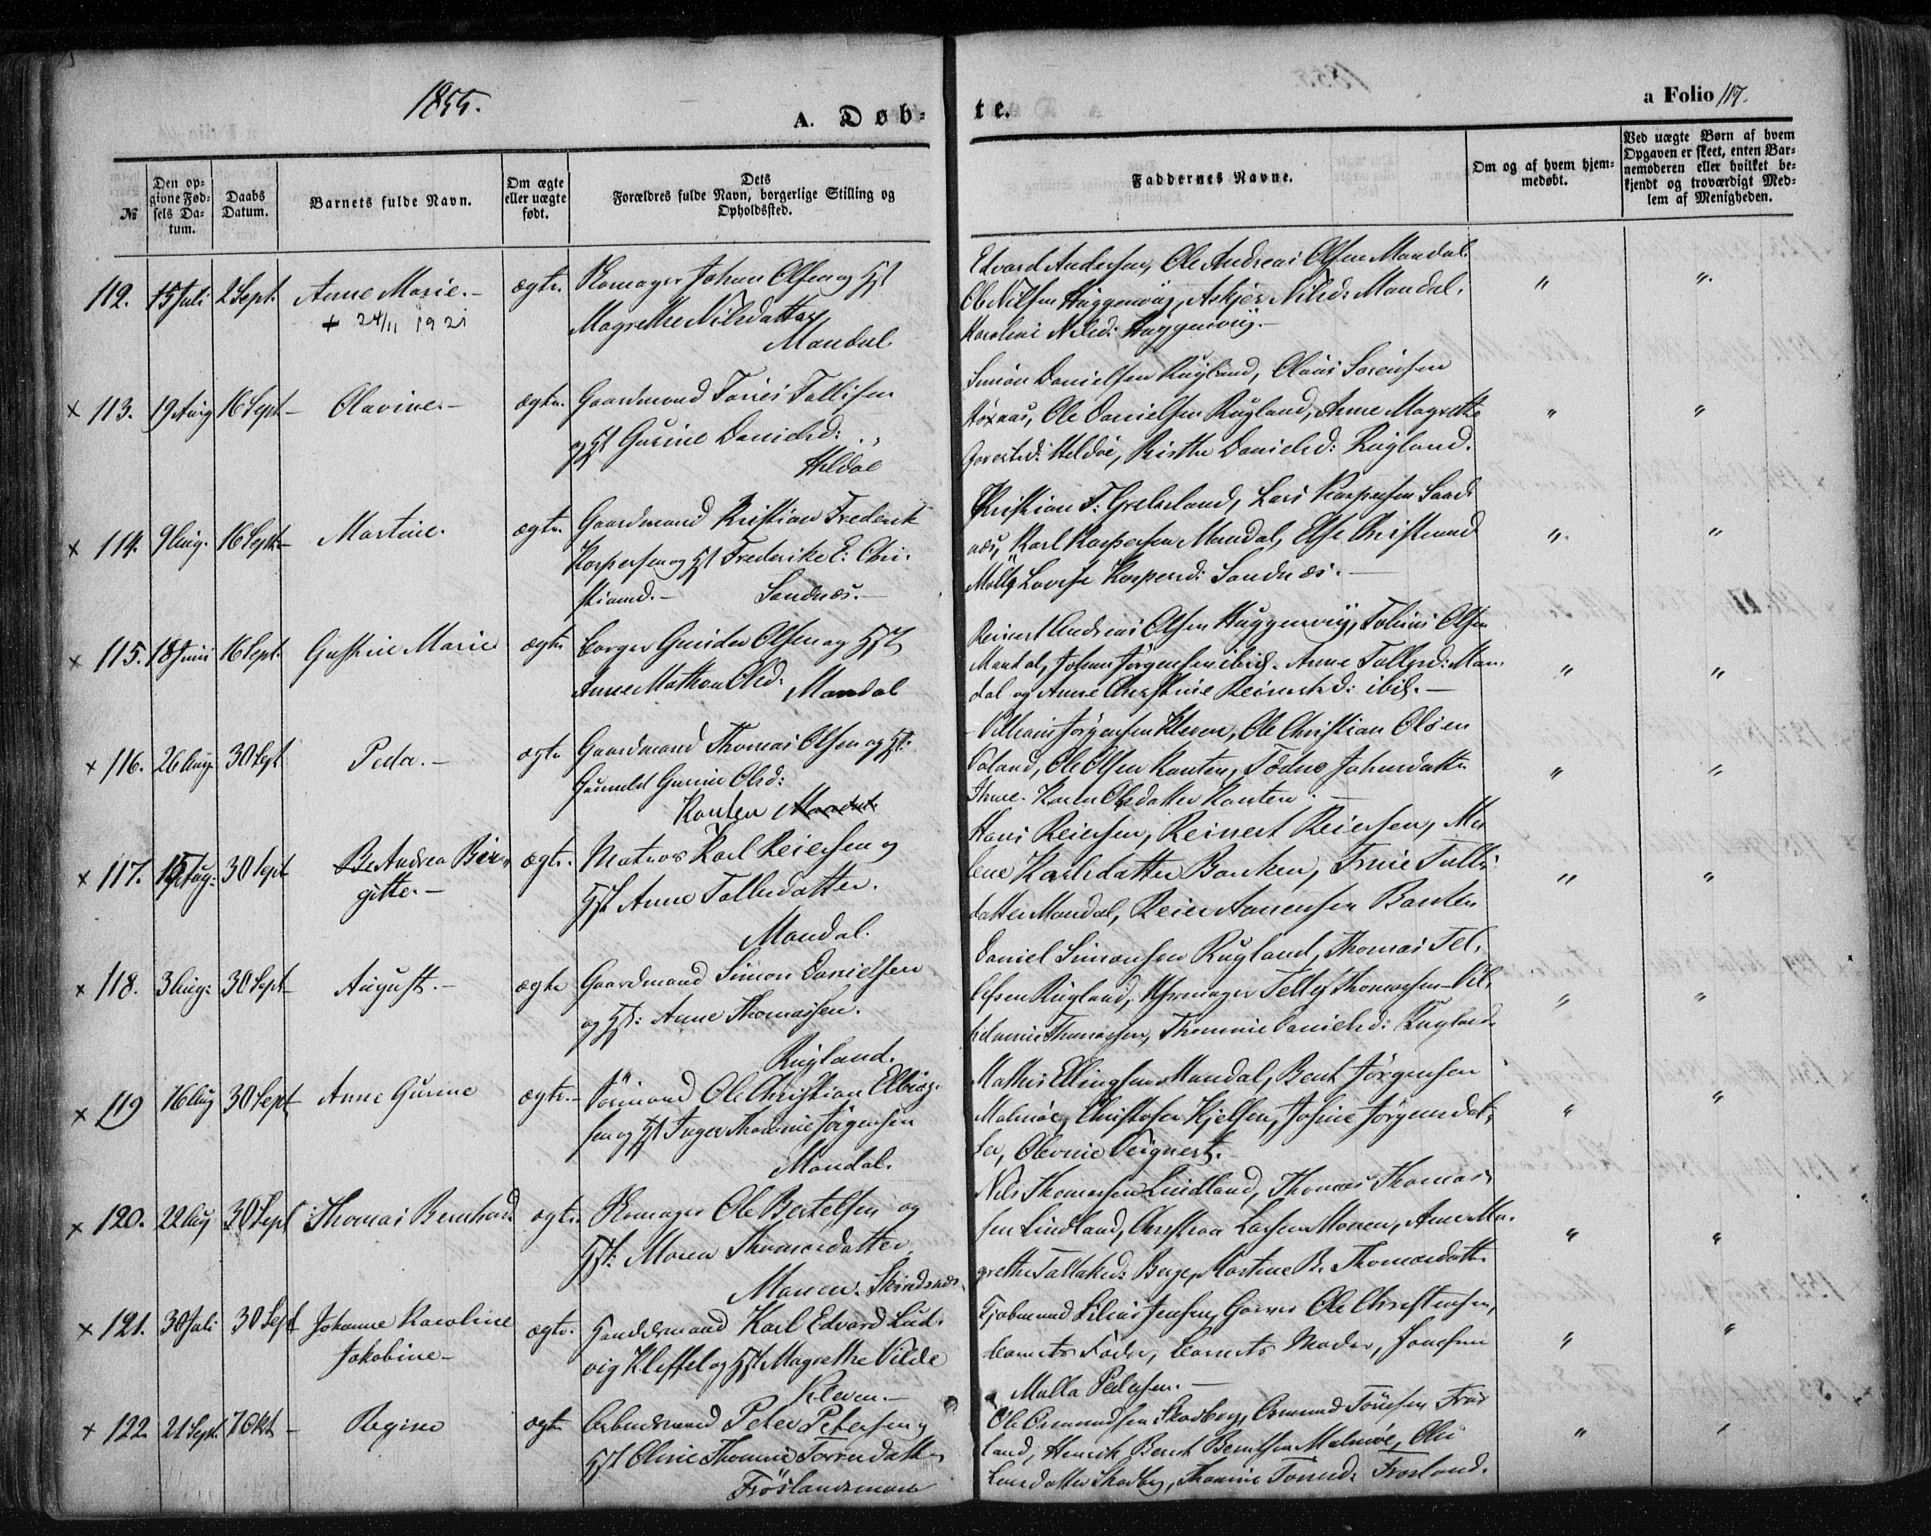 1855.
A. Døb-
te.
a Folio 117.
№
Den op-
givne Fød-
sels Da-
tum.
Daabs
Datum.
Barnets fulde Navn.
Om ægte
eller uægte
født.
Dets
Forældres fulde Navn, borgerlige Stilling og
Opholdssted.
Faddernes Navne.
Om og af hvem hjem-
medøbt.
Ved uægte Børn af hvem
Opgaven er skeet, enten Bar-
nemoderen eller hvilket be-
kjendt og troværdigt Med-
lem af Menigheden.
112. 15 Juli 2 Sept. Anne Marie.- ægte. Skomager Johan Olsen og Hst
+ 24/11 1921
Magrethe Nilsdatter
Mandal
Edvard Andersen, Ole Andreas Olsen Mandal.
Ole Nilsen Haggenvig, Nilsd: Mandal,
Karoline Nilsd: Haggenvig.-
" "
x 113. 19 Aug 16 Sept- Olavine.- ægte. Gaardmand Tallisen
og Hst Gurine Danielsd:
Heldal
Simon Danielsen Rugland, Olaus Sørensen
Ole Danielsen Rugland, Anne Magrethe
Danielsd: Rugland.
" "
x 114. 9 Aug. 16 Sept- Martine. ægte. Gaardmand Kristian Frederik
Kaspersen og Hst Frederike E: Chri-
stiansd.- Sandnæs.-
Christian F: Lars Kaspersen Sand-
næs, Karl Kaspersen Mandal, Else
Lovise Kaspersd: Sandnæs.-
" "
x 115. 18 Juni 16 Sept. Gustine Marie ægte Borger Gunder Olsen og Hst
Anne Olsd: Mandal
Reinert Andreas Olsen Haggenvig, Tobias Olsen
Mandal, Johan Jørgensen ibid. Anne Tallysd: Man-
dal og Anne Christine Reinertsd: ibid.-
" "
x 116. 26 Aug. 30 Sept Peder.- ægte Gaardmand Thomas Olsen og Hst:
Gurine Olsd:
Kanten Mandal
Villiam Jørgensen Kleven, Ole Christian Olsen
Ole Olsen Kanten, Johnsdatter
Olsdatter Kanten.-
" "
x 117. 15 Aug: 30 Sept Be Andrea Bir- ægte. Matros Karl Reiersen og
gitte.-
Hst Anne Tallesdatter.
Mandal.
Hans Reiersen, Reinert Reiersen, Ma-
lene Karlsdatter Banken, Talles-
datter Mandal, Reier Banken
" "
x 118. 3 Aug: 30 Sept- August.- ægte Gaardmand Simon Danielsen
og Hst: Anne Thomassen.
Rugland.
Daniel Simonsen Rugland, Thomas Tel-
lefsen Rugland, Uhrmager Tellef Thomassen
Thomassen, Thomine Danielsd: Rugland.
" "
x 119 16 Aug 30 Sept- Anne Gurine ægte.- Sømand Ole Christian
sen og Hst Inger Thomine Jørgensen
Mandal.
Mathis Ellingsen Mandal, Bent Jørgensen
Malmøe, Christofer Kjelsen, Josine Jørgensdat-
ter, Olevine
" "
x 120. 22 Aug 30 Sept Thomas Bernhard ægte. Skomager Ole Bertelsen og
Hst: Maren Thomasdatter
Monen. Skindsnes.
Nils Thomassen Lindland, Thomas Thomas-
sen Lindland, Christian Larsen Monen, Anne Ma-
grethe Tallaksd: Berge, Martine B. Thomasdatter
" "
x 121. 30 Juli 30 Sept Johanne Karoline ægte. Handelsmand Karl Edvard Lud-
Jakobine-
vig Kleffel og Hst Magrethe Vilde
Kleven.-
Kjøbmand Elias Jensen, Ole Christensen,
barnets Fader, barnets Moder, Josefine
Malla Pedersen.-
" "
x 122. 21 Sept. 7 Okt - Regine ægte Arbeidsmand Peter Petersen og
Hst Oline Thomine
Frøslandsmoen
Ole Osmundsen Skadberg, Osmund Tønnesen Frøs-
land, Henrik Bent Berntsen Malmøe,
Larsdatter Skadberg, Thomine Tønnesd: Frøsland.
" "